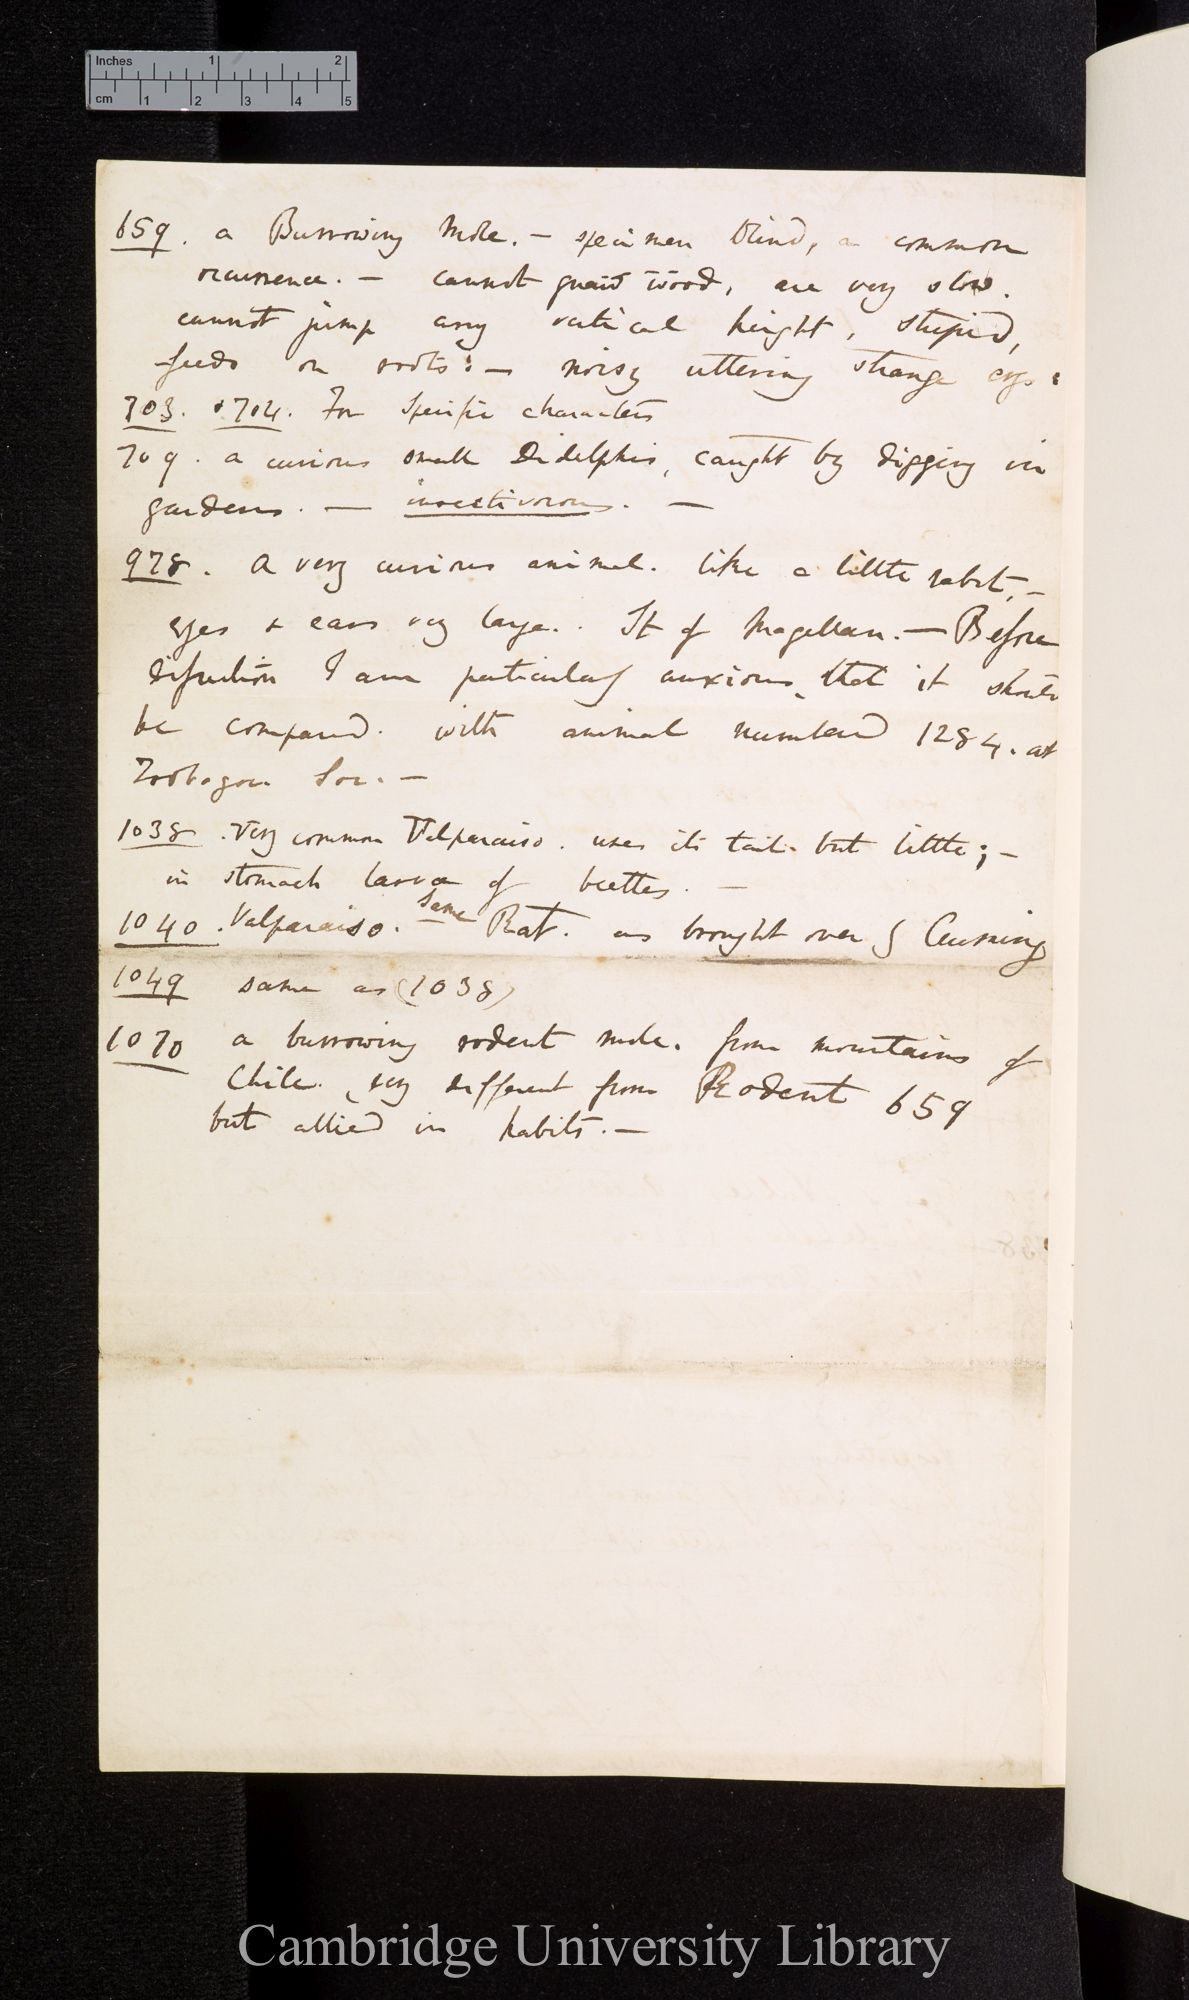 Inches 1 2
cm 1 2 3 4 5
659. a Burrowing Mole. — specimen blind, a common
occurrence. — cannot gnaw wood, are very slow.
cannot jump any vertical height, stupid,
feeds on roots: — noisy uttering strange crys:
703. & 704. For Specific characters
709. a curious small Didelphis, caught by digging in
gardens. — insectivorous. —
978. A very curious animal. like a little rabit, —
eyes & ears very large. St of Magellan. — Before
disection I am particularly anxious that it should
be compared. with animal numbered 1284. at
Zoologon Soc. —
1038. Very common Valparaiso. uses its tail. but little; —
in stomach larvæ of beetles. —
1040. Valparaiso. Same Rat. as brought over by Cuming
1049 same as (1038)
1070 a burrowing rodent mole. from mountains of
Chile. very different from Rodent 659
but allied in habits. —
Cambridge University Library